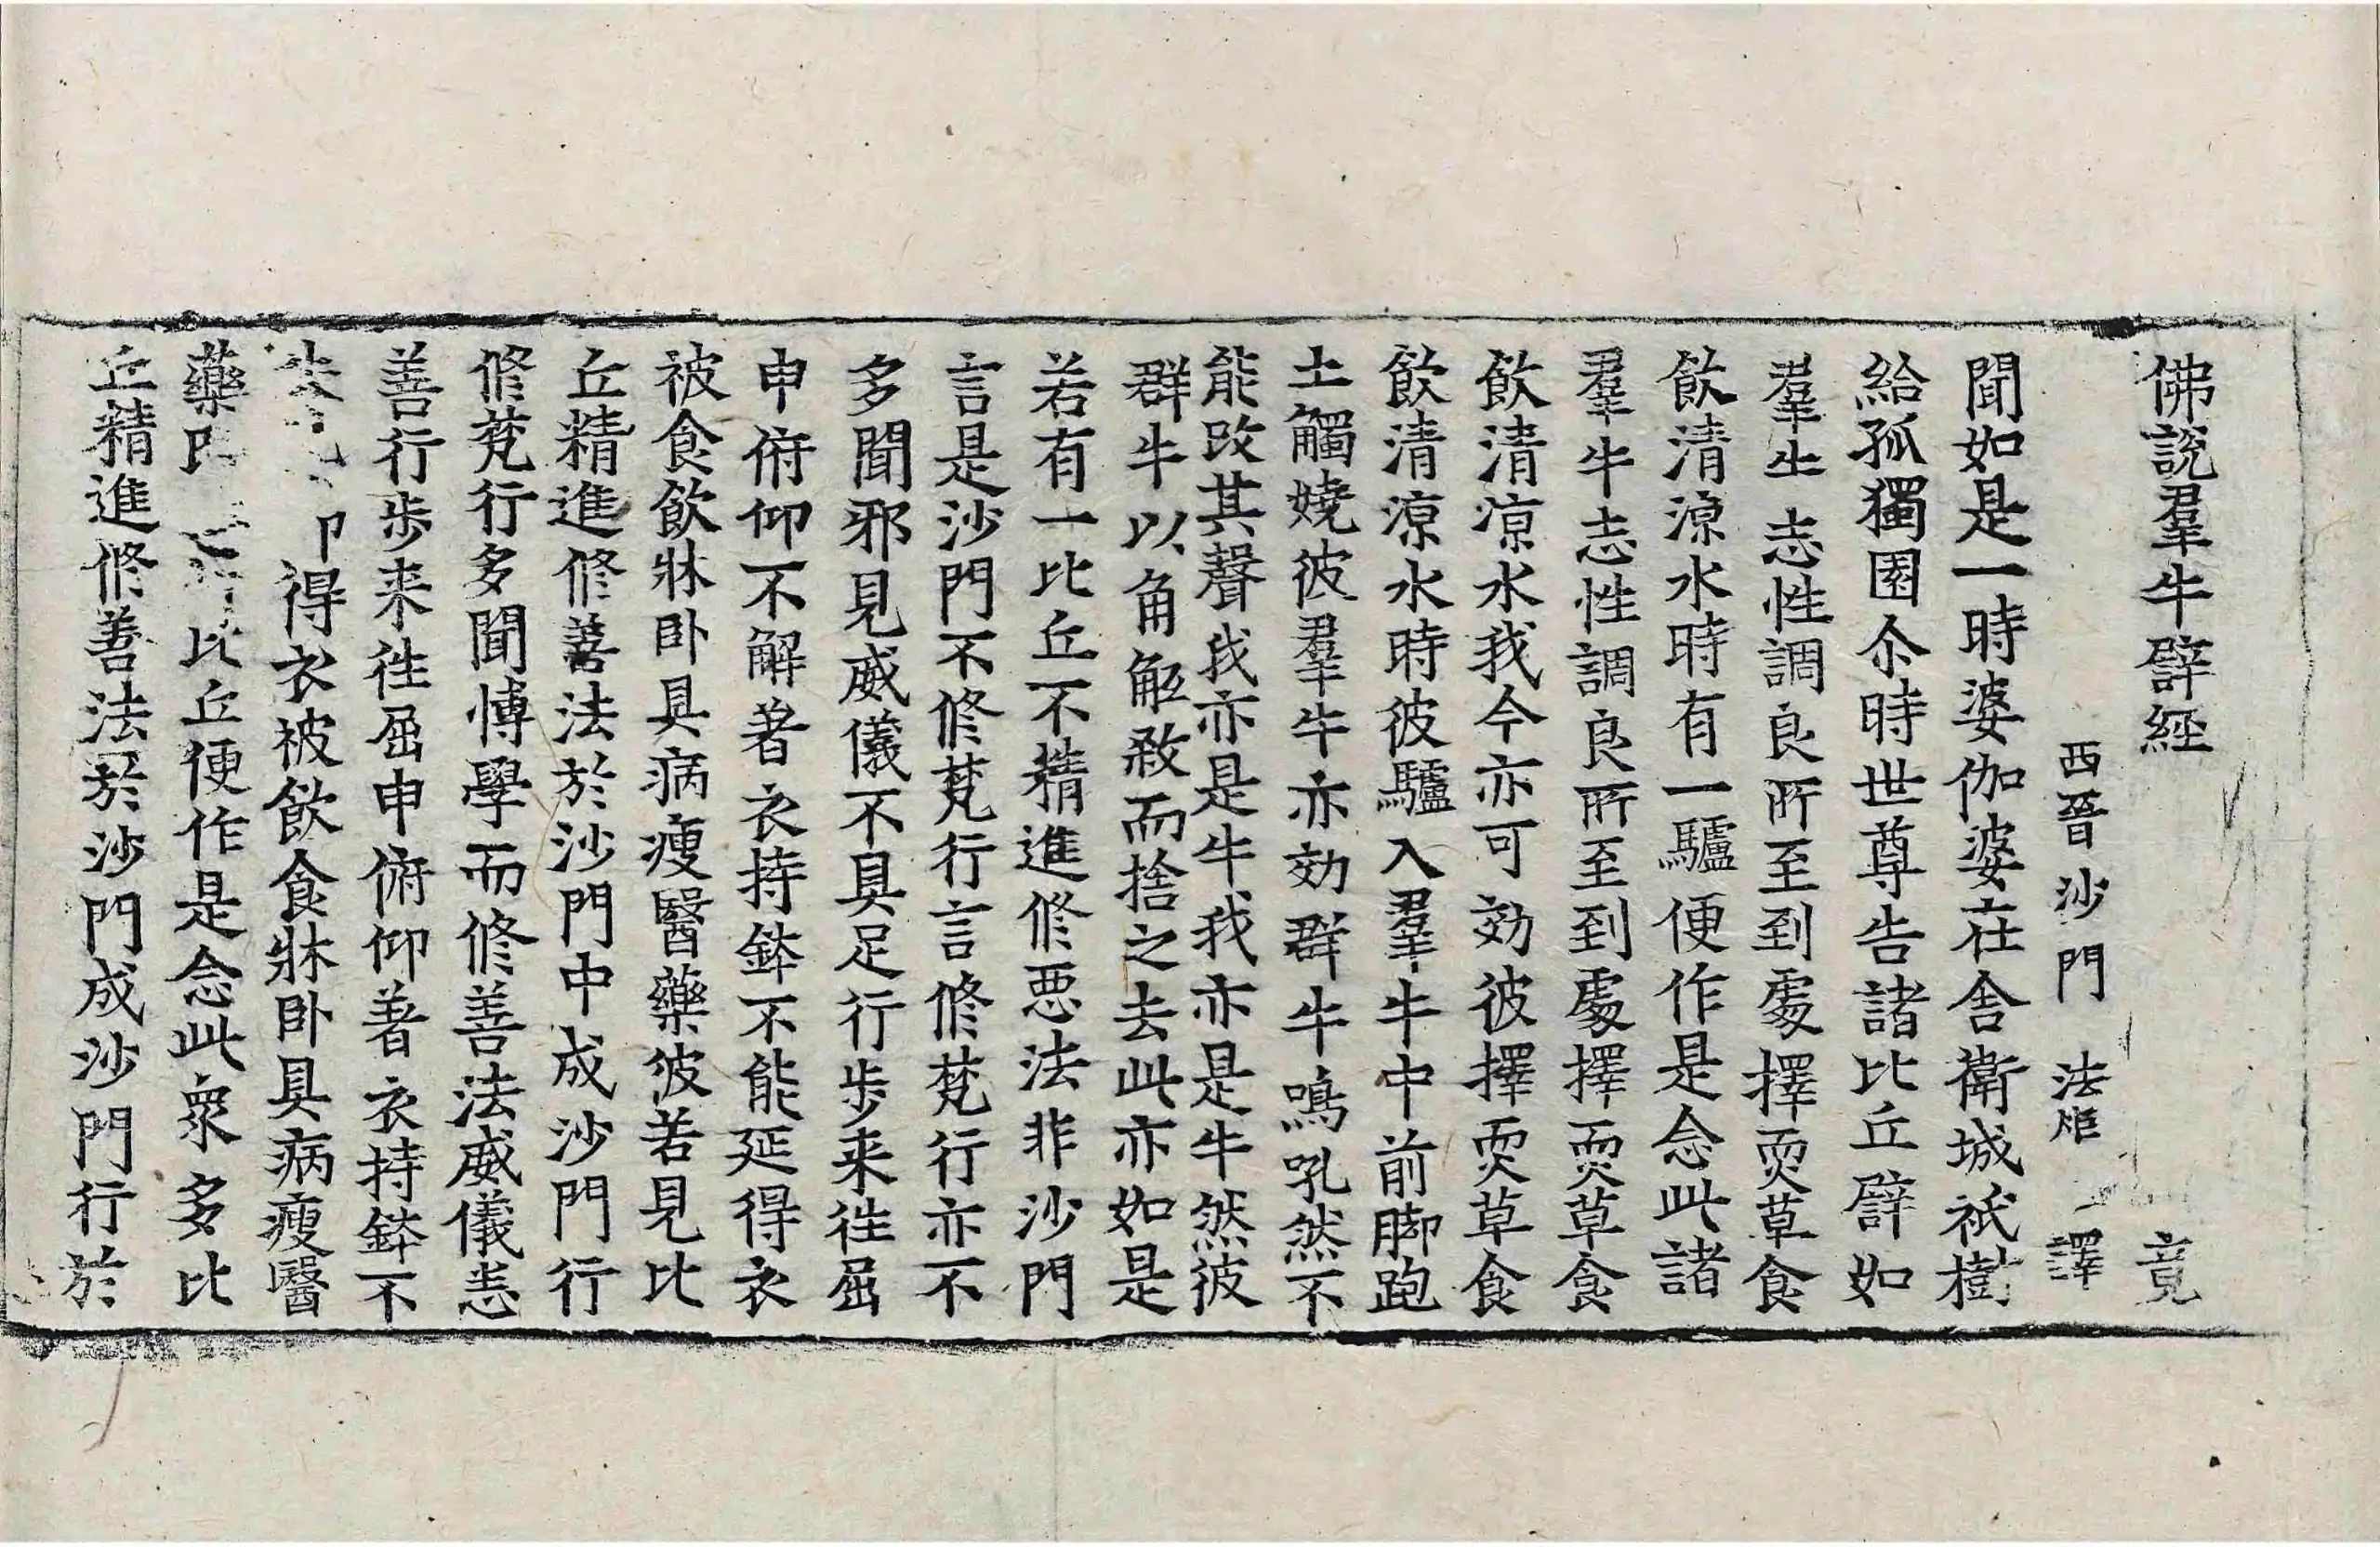 佛說羣牛譬經 竟
西晉沙門 法炬 譯
聞如是一時婆伽婆在舍衛城祇樹
給孤獨園尒時世尊告諸比丘譬如
羣牛志性調良所至到處擇耎草食
飲清涼水時有一驢便作是念此諸
羣牛志性調良所至到處擇耎草食
飲清涼水我今亦可効彼擇耎草食
飲清涼水時彼驢入羣牛中前脚跑
土觸嬈彼羣牛亦効群牛鳴吼然不
能改其聲我亦是牛我亦是牛然彼
群牛以角觝殺而捨之去此亦如是
若有一比丘不精進修惡法非沙門
言是沙門不修梵行言修梵行亦不
多聞邪見威儀不具足行步来往屈
申俯仰不解著衣持鉢不能延得衣
被食飲牀卧具病瘦醫藥彼若見比
丘精進修善法於沙門中成沙門行
修梵行多聞博學而修善法威儀恙
善行步来往屈申俯仰著衣持鉢不
失得衣被飲食牀卧具病瘦醫
藥比丘便作是念此衆多比
丘精進修善法於沙門成沙門行於